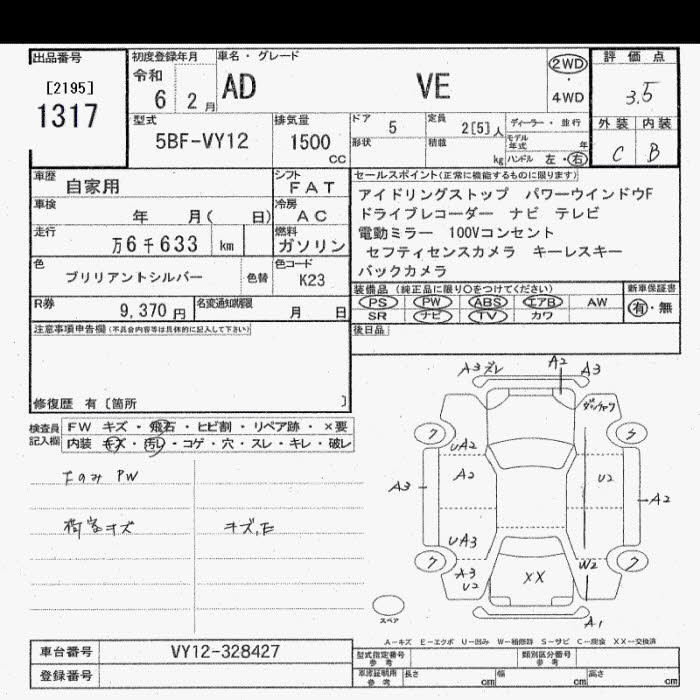 出品番号
[2195]
1317
初度登録年月
令和 6 2月
車名・グレード
AD VE
2WD
・
4WD
評価点
3.5
型式
5BF-VY12
排気量
1500
cc
ドア 5
定員 2[5]人
ディーラー・並行
形状
積載 kg
モデル年式 年
ハンドル 左・右
外装 内装
C B
車歴 自家用
シフト FAT
車検 年 月( 日)
冷房 AC
走行 万6千633 km
燃料 ガソリン
色 ブリリアントシルバー 色替
色コード K23
R券 9,370円
名変通知期限 月 日
セールスポイント(正常に機能するものに限ります)
アイドリングストップ パワーウインドウF
ドライブレコーダー ナビ テレビ
電動ミラー 100Vコンセント
セフティセンスカメラ キーレスキー
バックカメラ
装備品(純正品に限り○をつけてください)
新車保証書
PS PW ABS エアB AW
SR ナビ TV カワ
有・無
後日品
注意事項申告欄(不具合内容等は具体的に記入して下さい)
修復歴 有〔箇所 〕
検査員記入欄
FW キズ・飛石・ヒビ割・リペア跡・×要
内装 キズ・汚レ・コゲ・穴・スレ・キレ・破レ
下のみ PW
荷室キズ
キズ,E
A3ズレ A2 A3
フ
UA2
A2
A3
U2
A2
UA3
フ
A3
U2
XX
W2
フ
A1
スペア
A−キズ E−エクボ U−凹み W−補修跡 S−サビ C−腐食 XX−交換済
車台番号 VY12-328427
登録番号
型式指定番号 参考
類別区分番号 参考
車庫証明用 参考
長さ cm 幅 cm 高さ cm